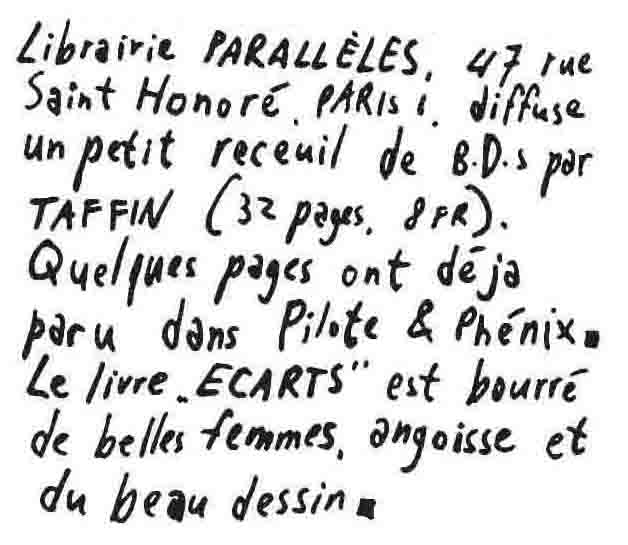 Librairie PARALLÈLES, 47 rue
Saint Honoré, PARIS 1, diffuse
un petit receuil de B.D.s par
TAFFIN (32 pages, 8 FR).
Quelques pages ont déja
paru dans Pilote & Phénix.
Le livre „ECARTS" est bourré
de belles femmes, angoisse et
du beau dessin.